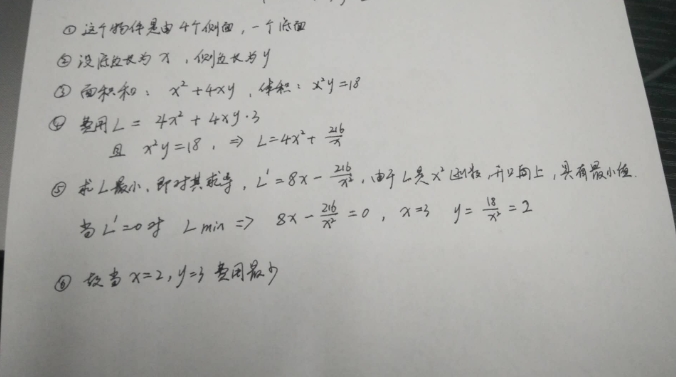 ① 这个物件是由4个侧面，一个底面
② 设底边长为x，侧边长为y
③ 面积和：x²+4xy，体积：x²y=18
④ 费用L= 4x²+4xy·3
且 x²y=18，=> L=4x²+216/x
⑤ 求L最小，即对其求导，L'=8x-216/x²，由于L是x²函数，开口向上，具有最小值.
当L'=0时 Lmin => 8x-216/x²=0，x=3 y=18/x²=2
⑥ 故当x=2，y=3费用最少